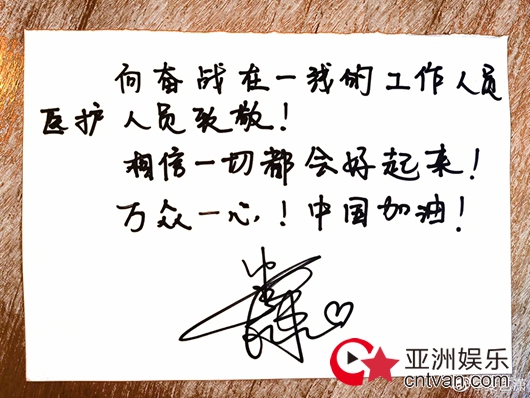 向奋战在一线的工作人员
医护人员致敬!
相信一切都会好起来!
万众一心!中国加油!
亚洲娱乐
cntvan.com